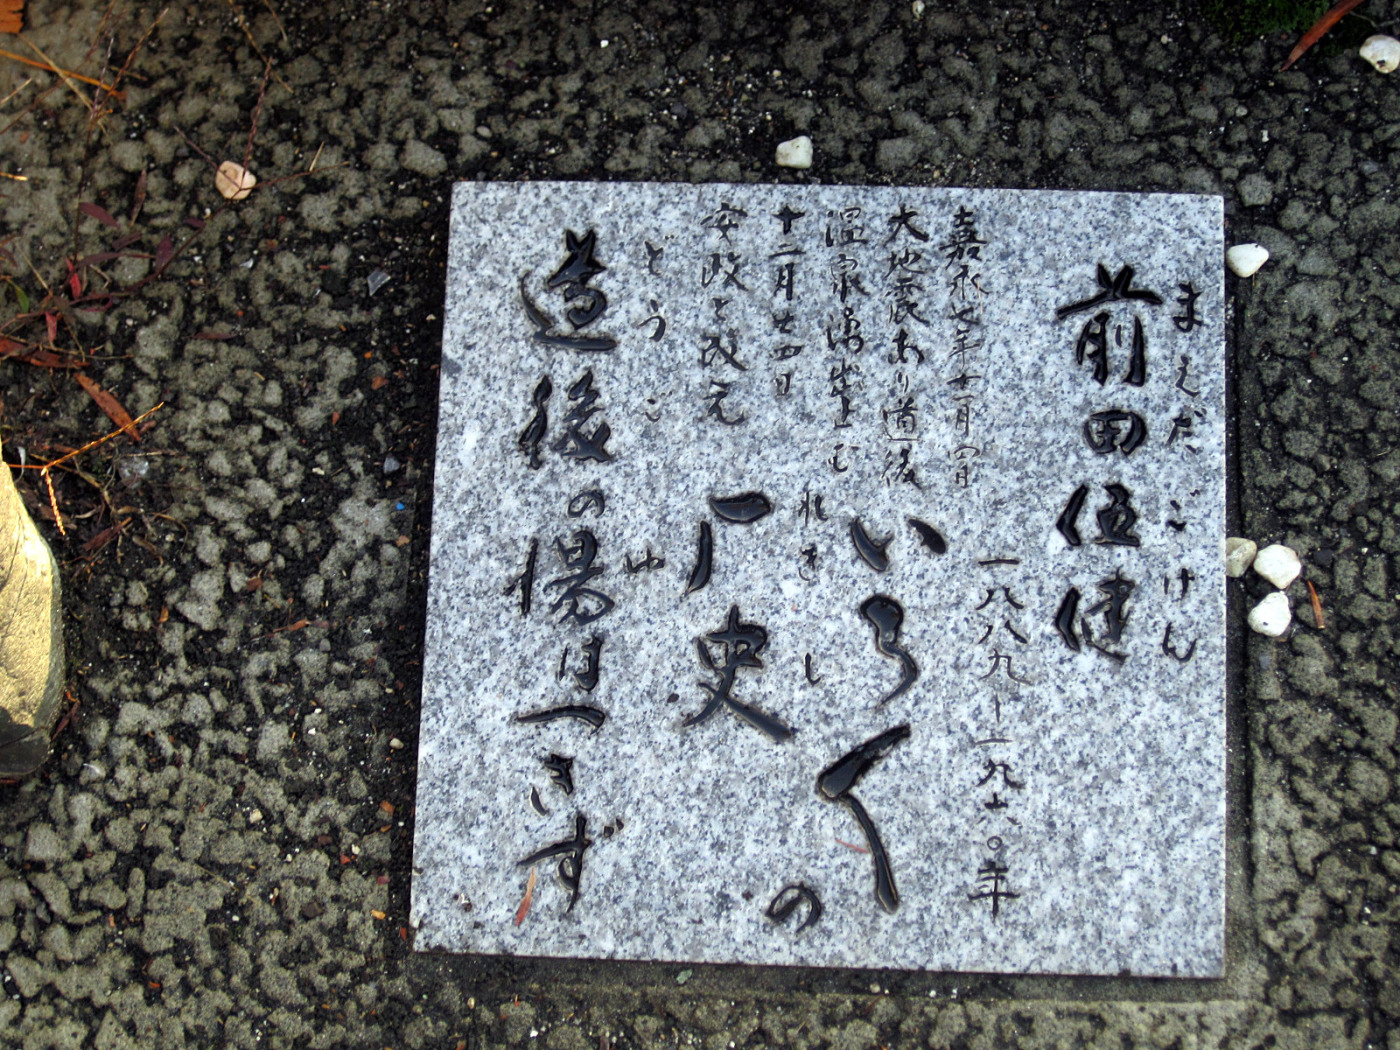 まえだごけん
前田伍健
一八八九ー一九六〇年
嘉永七年十一月四日
大地震あり道後
温泉湧出止む
十二月廿四日
安政と改元
いろ〱の
れきし
厂史
どうご ゆ
道後の湯はつきず